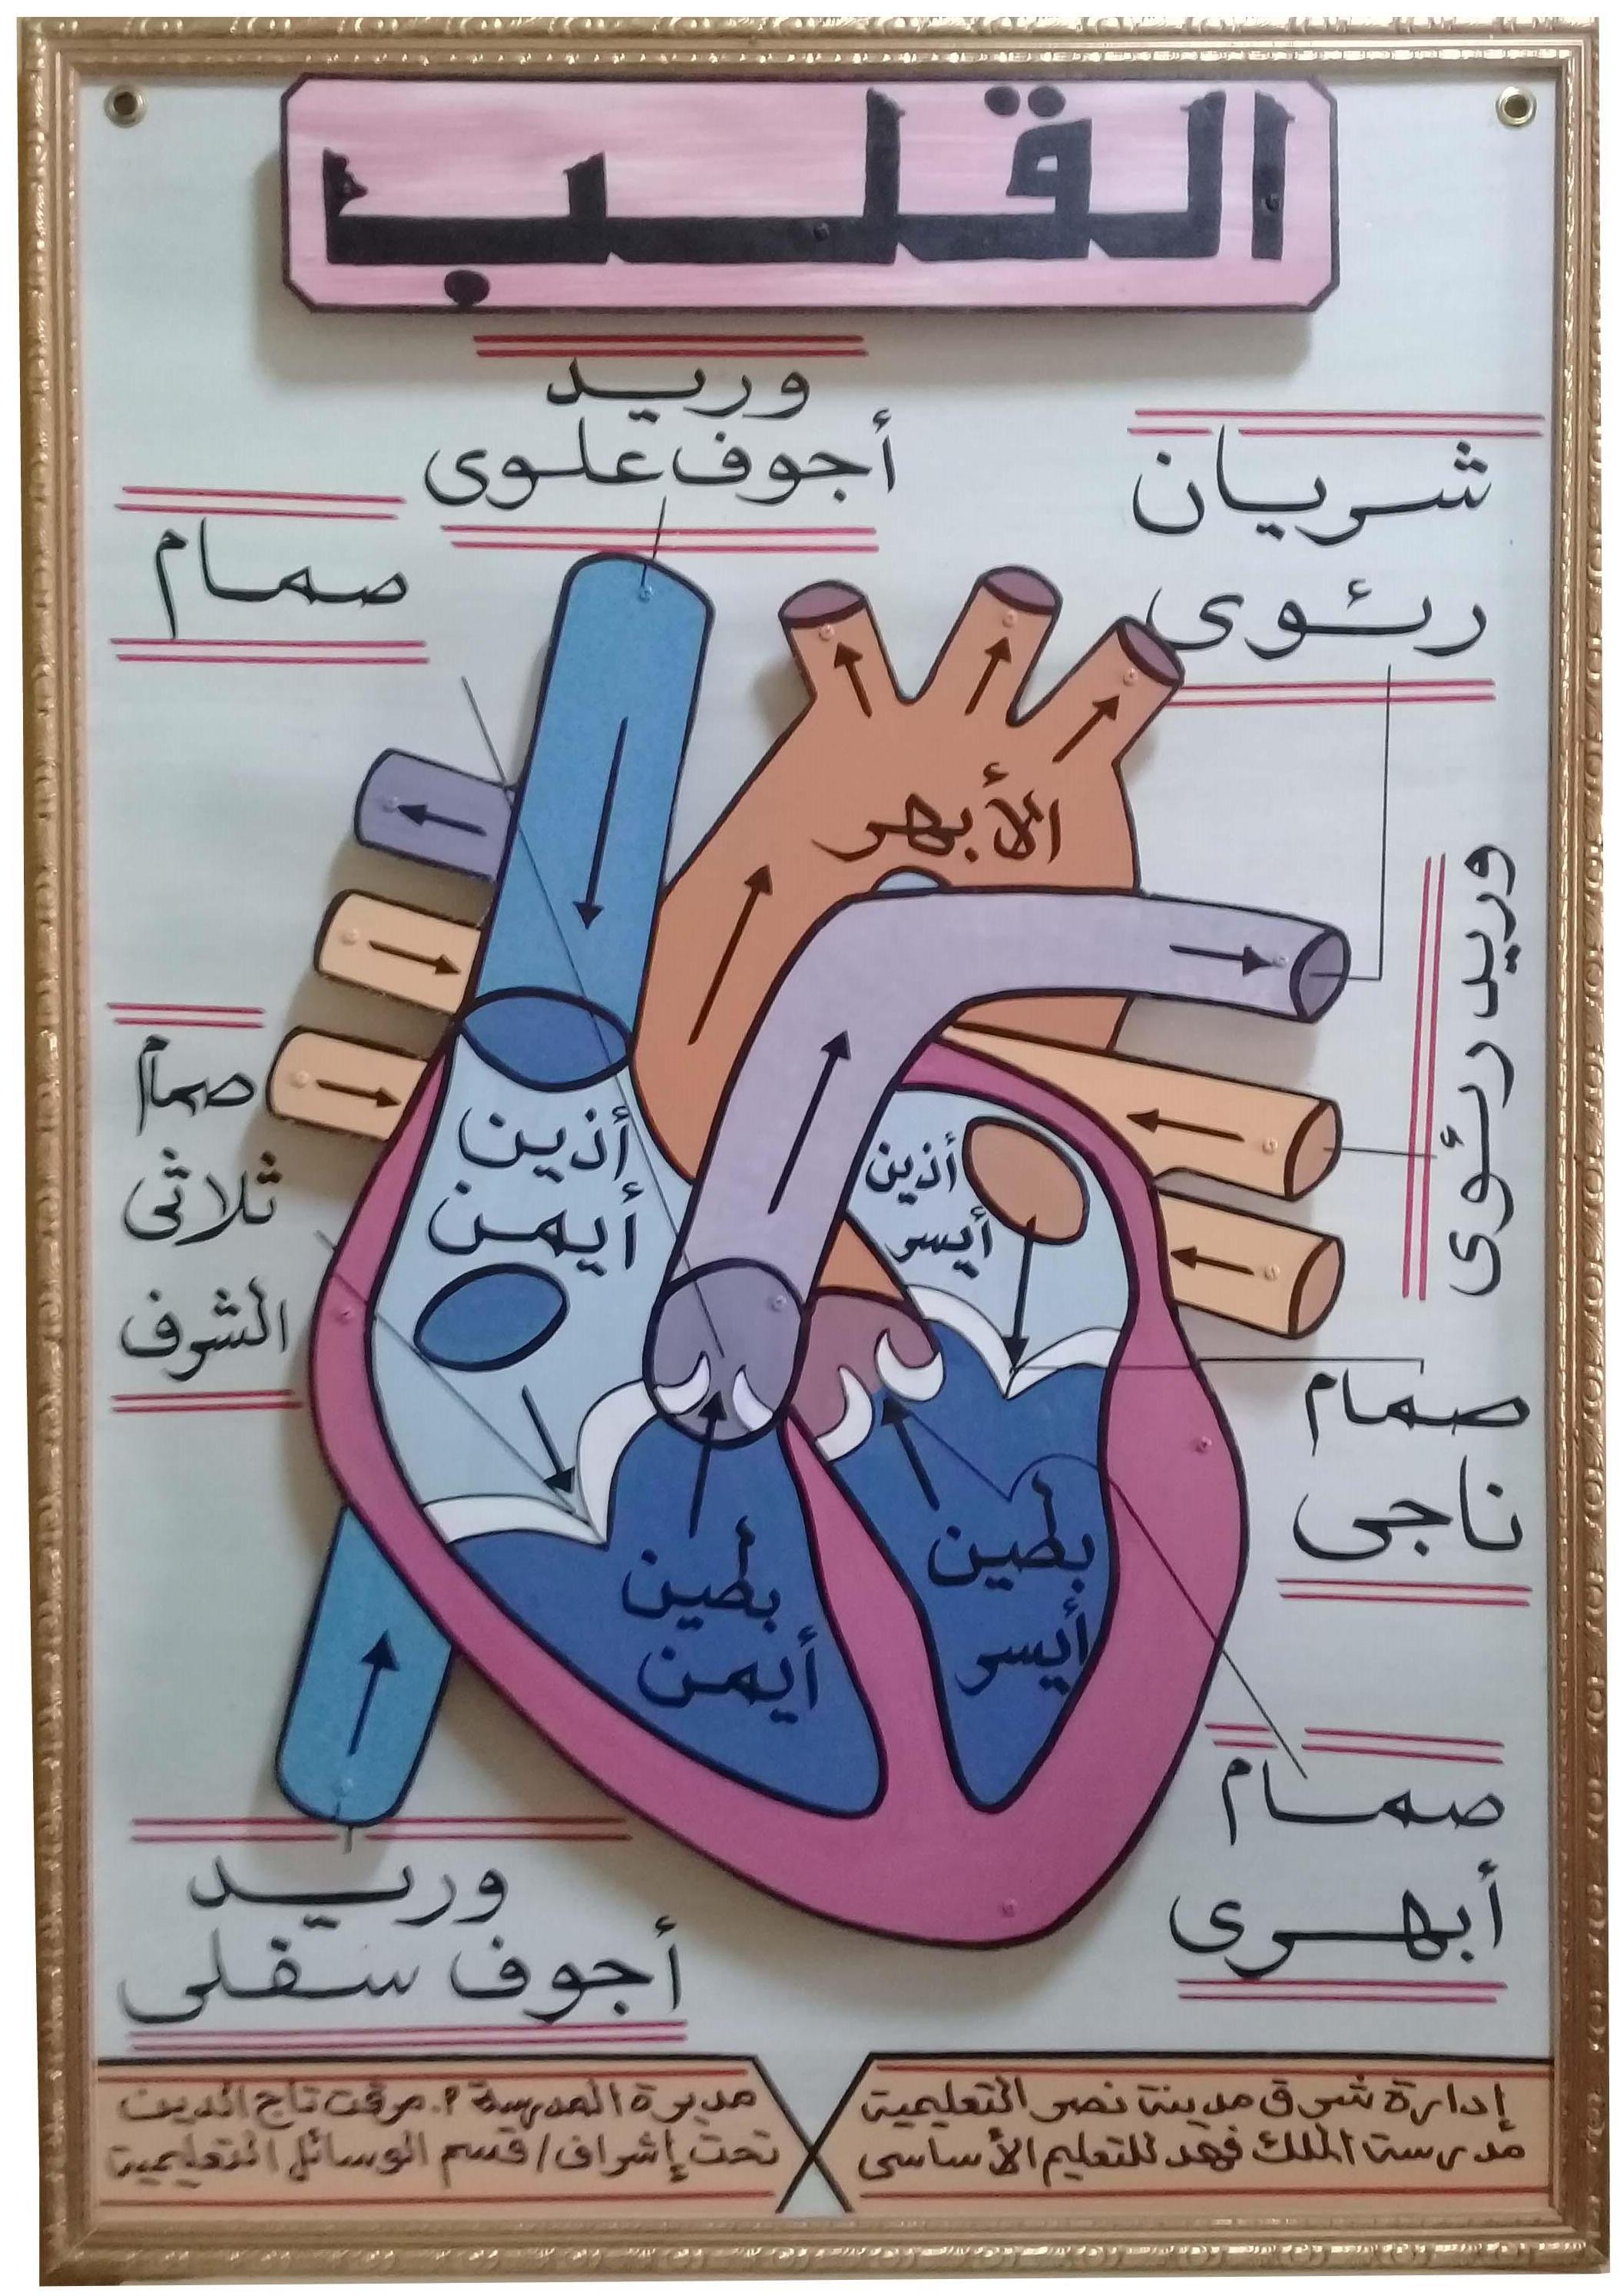 القلب
وريد
أجوف علوى
شريان
رئوى
صمام
الأبهر
وريد رئوى
صمام
ثلاثى
الشرف
أذين
أيمن
أذين
أيسر
صمام
ناجى
بطين
أيمن
بطين
أيسر
صمام
أبهرى
وريد
أجوف سفلى
إدارة شرق مدينة نصر التعليمية
مدرسة الملك فهد للتعليم الأساسى
مديرة المدرسة م. مرفت تاج الدين
تحت إشراف / قسم الوسائل التعليمية